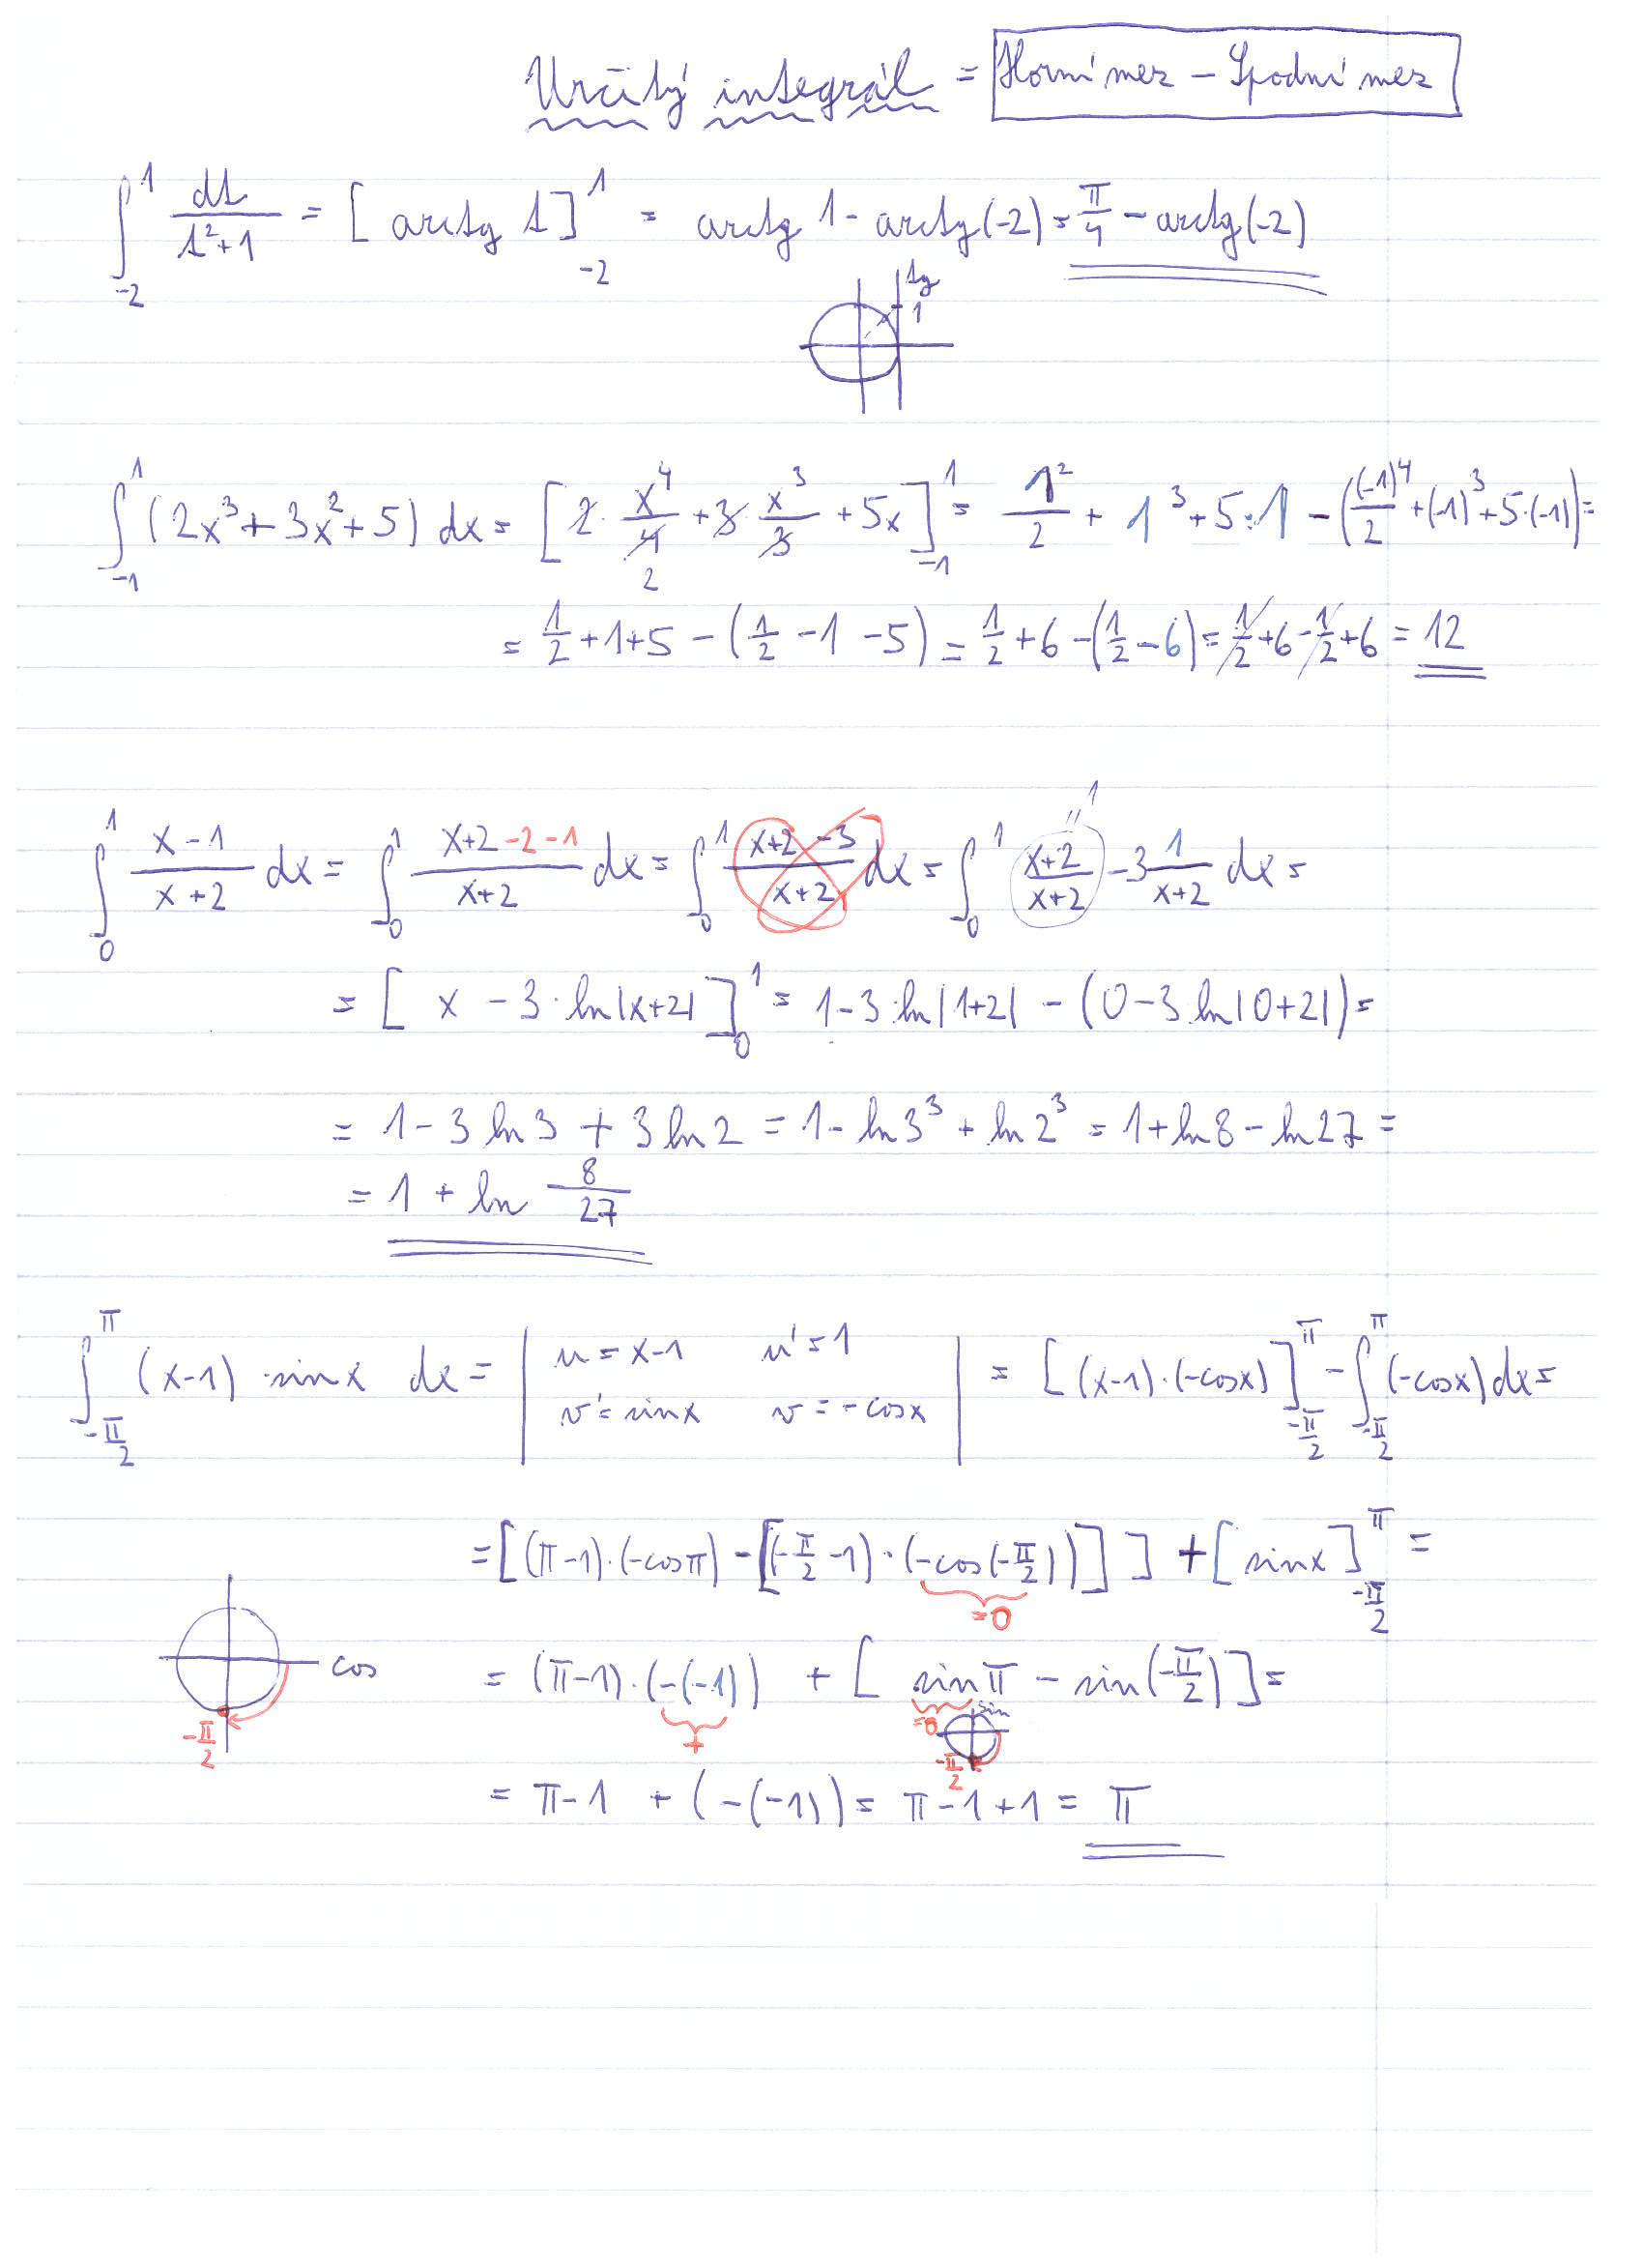 Určitý integrál = Horní mez – Spodní mez
∫_{-2}^{1} dt/(t²+1) = [arctg t]_{-2}^{1} = arctg 1 - arctg(-2) = π/4 - arctg(-2)
tg
1
∫_{-1}^{1} (2x³ + 3x² + 5) dx = [2·x⁴/4 + 3·x³/3 + 5x]_{-1}^{1} = 1²/2 + 1³ + 5·1 - ((-1)⁴/2 + (-1)³ + 5·(-1)) =
2
= 1/2 + 1 + 5 - (1/2 - 1 - 5) = 1/2 + 6 - (1/2 - 6) = 1/2 + 6 - 1/2 + 6 = 12
∫_{0}^{1} (x-1)/(x+2) dx = ∫_{0}^{1} (x+2-2-1)/(x+2) dx = ∫_{0}^{1} (x+2-3)/(x+2) dx = ∫_{0}^{1} (x+2)/(x+2) - 3 1/(x+2) dx =
= 1
= [x - 3·ln|x+2|]_{0}^{1} = 1 - 3·ln|1+2| - (0 - 3 ln|0+2|) =
= 1 - 3 ln 3 + 3 ln 2 = 1 - ln 3³ + ln 2³ = 1 + ln 8 - ln 27 =
= 1 + ln 8/27
∫_{-π/2}^{π} (x-1)·sin x dx = | u = x-1 u' = 1 | = [(x-1)·(-cos x)]_{-π/2}^{π} - ∫_{-π/2}^{π} (-cos x) dx =
v' = sin x v = -cos x
= [(π-1)·(-cos π) - [(-π/2 - 1)·(-cos(-π/2))]] + [sin x]_{-π/2}^{π} =
= 0
cos
-π/2
= (π-1)·(-(-1)) + [sin π - sin(-π/2)] =
+
= 0
sin
-π/2
= π - 1 + (-(-1)) = π - 1 + 1 = π